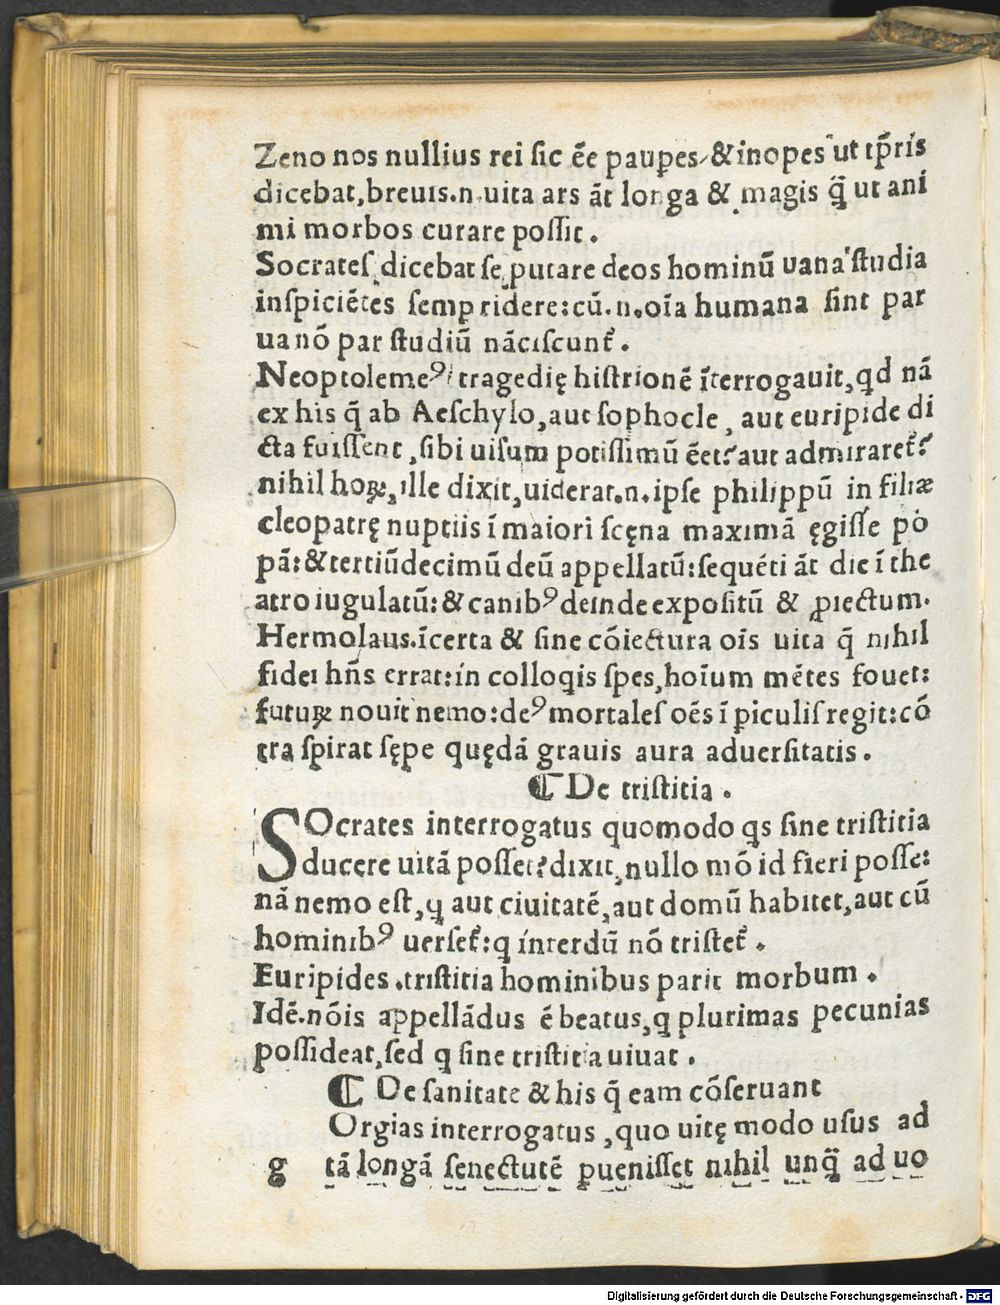 Zeno nos nullius rei sic ēe paupes, & inopes ut tp̄ris
dicebat, breuis.n.uita ars āt longa & magis q̄̈ ut ani
mi morbos curare possit.
Socrates dicebat se putare deos hominū uana studia
inspiciētes semp ridere: cū.n.oīa humana sint par
ua nō par studiū nāciscunt᷑.
Neoptolemeꝰ tragedię histrionē īterrogauit, qd nā
ex his q̄ ab Aeschylo, aut sophocle, aut euripide di
cta fuissent, sibi uisum potissimū ēet? aut admiraret᷑?
nihil hoꝝ, ille dixit, uiderat.n.ipse philippū in filiæ
cleopatrę nuptiis ī maiori scęna maximā ęgisse pō
pā: & tertiūdecimū deū appellatū: sequēti āt die ī the
atro iugulatū: & canibꝰ deinde expositū & ꝓiectum.
Hermolaus.īcerta & sine cōiectura oīs uita q̄ nihil
fidei hn̄s errat: in colloqis spes, hoīum mētes fouet:
futuꝝ nouit nemo: deꝰ mortales oēs ī piculis regit: cō
tra spirat sępe quędā grauis aura aduersitatis.
⁋ De tristitia.
SOcrates interrogatus quomodo qs sine tristitia
ducere uitā posset? dixit, nullo mō id fieri posse:
nā nemo est, q aut ciuitatē, aut domū habitet, aut cū
hominibꝰ uerset᷑: q interdū nō tristet᷑.
Euripides.tristitia hominibus parit morbum.
Idē.nōis appellādus ē beatus, q plurimas pecunias
possideat, sed q sine tristitia uiuat.
⁋ De sanitate & his q̄ eam cōseruant
Orgias interrogatus, quo uitę modo usus ad
g tā longā senectutē ꝑuenisset nihil unq̄̈ ad uo
Digitalisierung gefördert durch die Deutsche Forschungsgemeinschaft - DFG